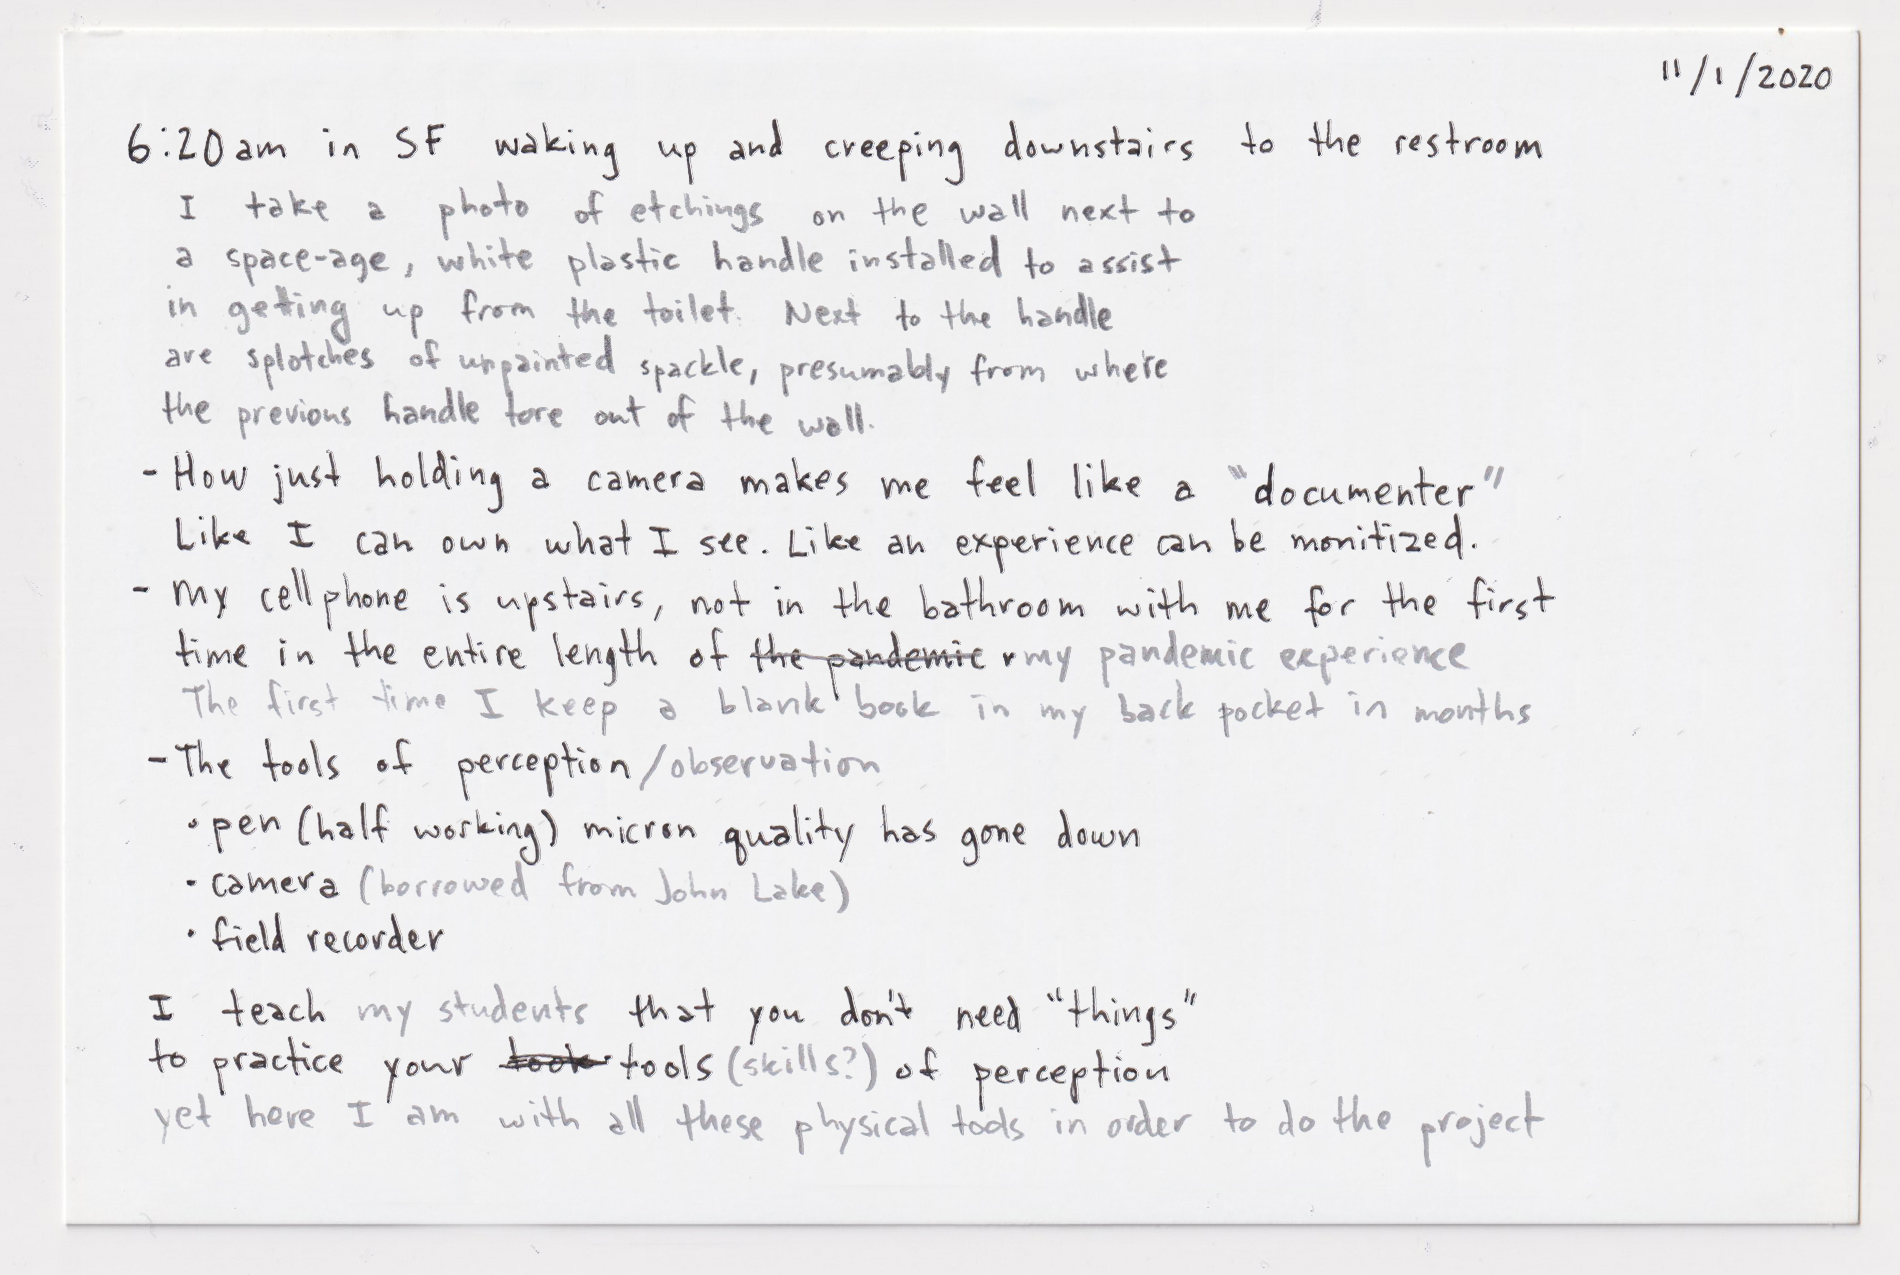 11/1/2020
6:20am in SF waking up and creeping downstairs to the restroom
I take a photo of etchings on the wall next to
a space-age, white plastic handle installed to assist
in getting up from the toilet. Next to the handle
are splotches of unpainted spackle, presumably from where
the previous handle tore out of the wall.
- How just holding a camera makes me feel like a "documenter"
Like I can own what I see. Like an experience can be monitized.
- My cell phone is upstairs, not in the bathroom with me for the first
time in the entire length of the pandemic my pandemic experience
The first time I keep a blank book in my back pocket in months
- The tools of perception/observation
• pen (half working) micron quality has gone down
• camera (borrowed from John Lake)
• field recorder
I teach my students that you don't need "things"
to practice your tools (skills?) of perception
yet here I am with all these physical tools in order to do the project